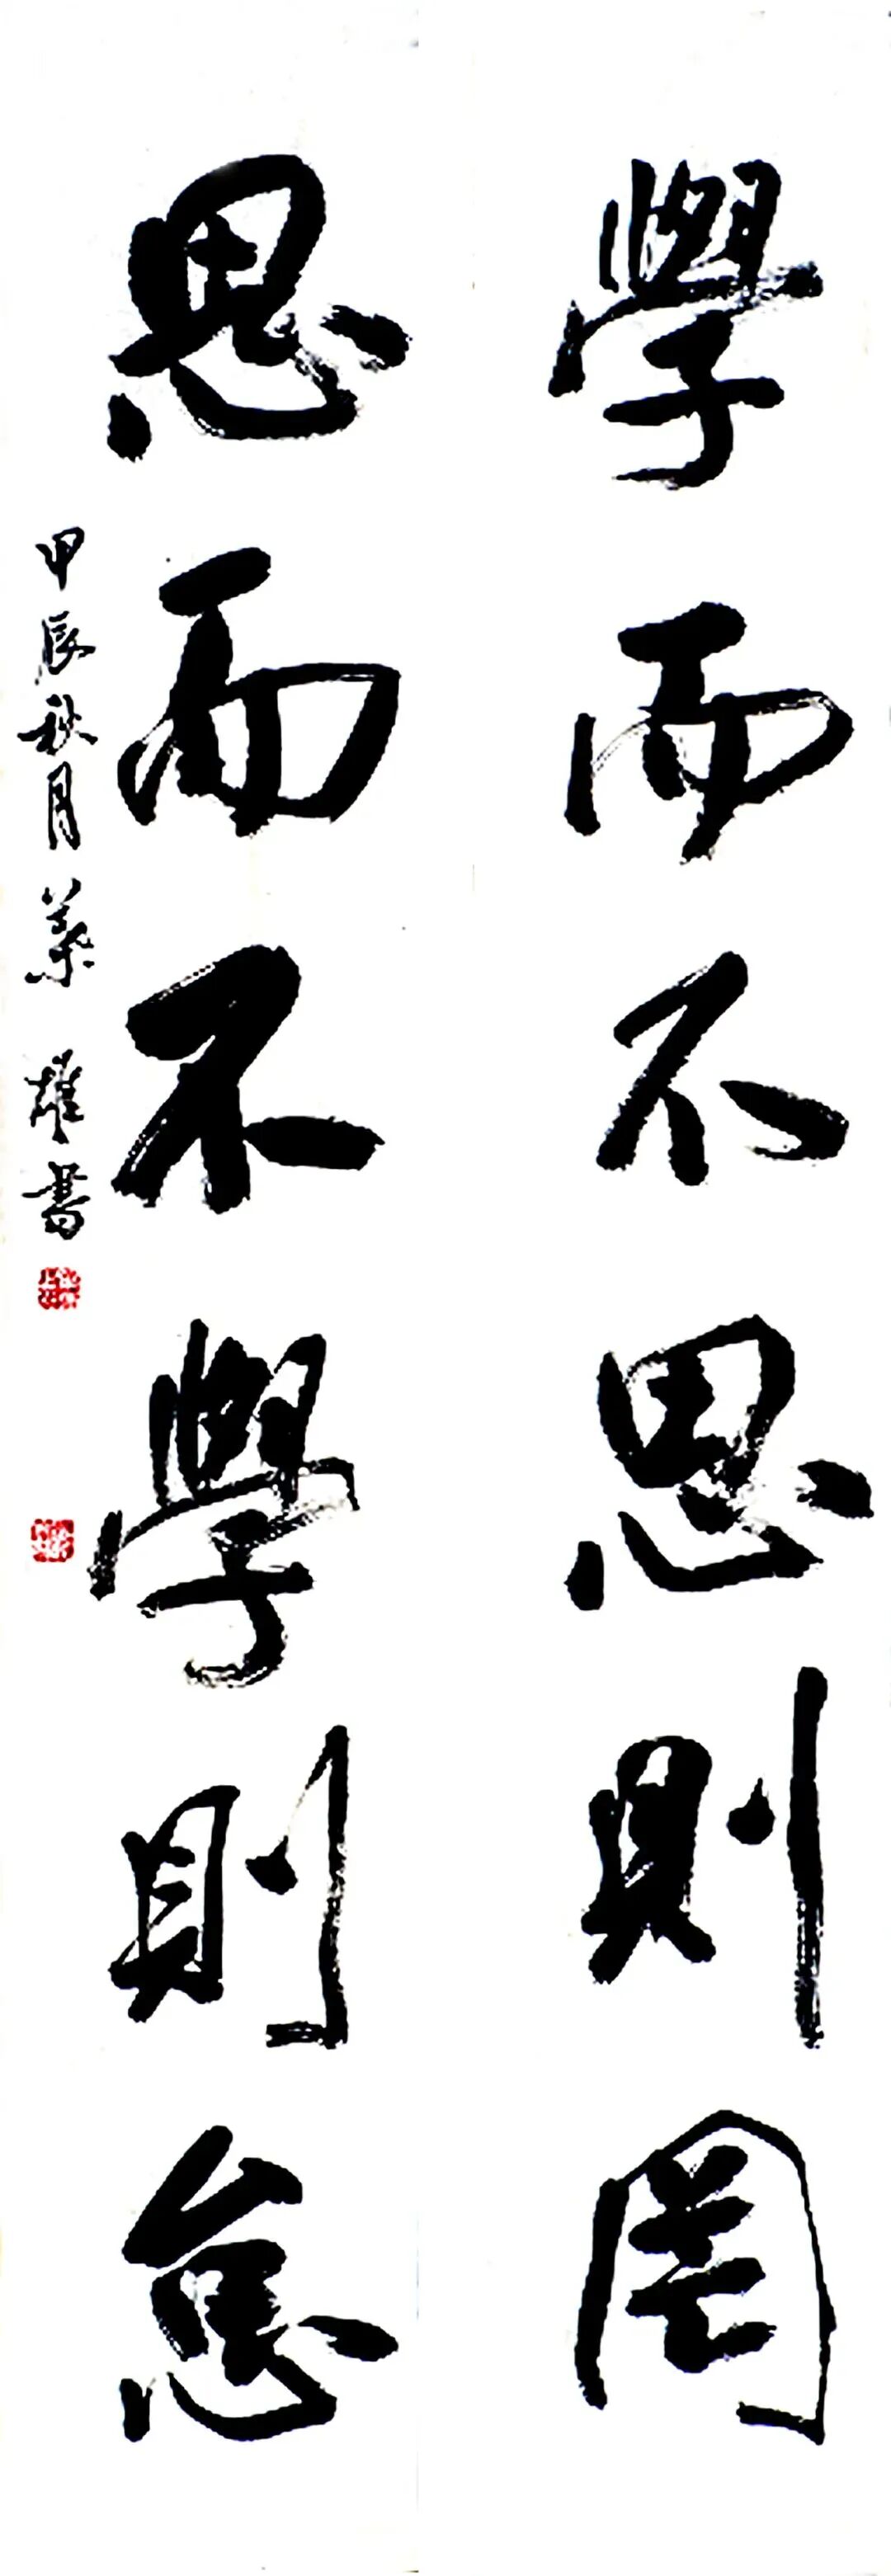 學而不思則罔
思而不學則怠
甲辰秋月 葉雄書